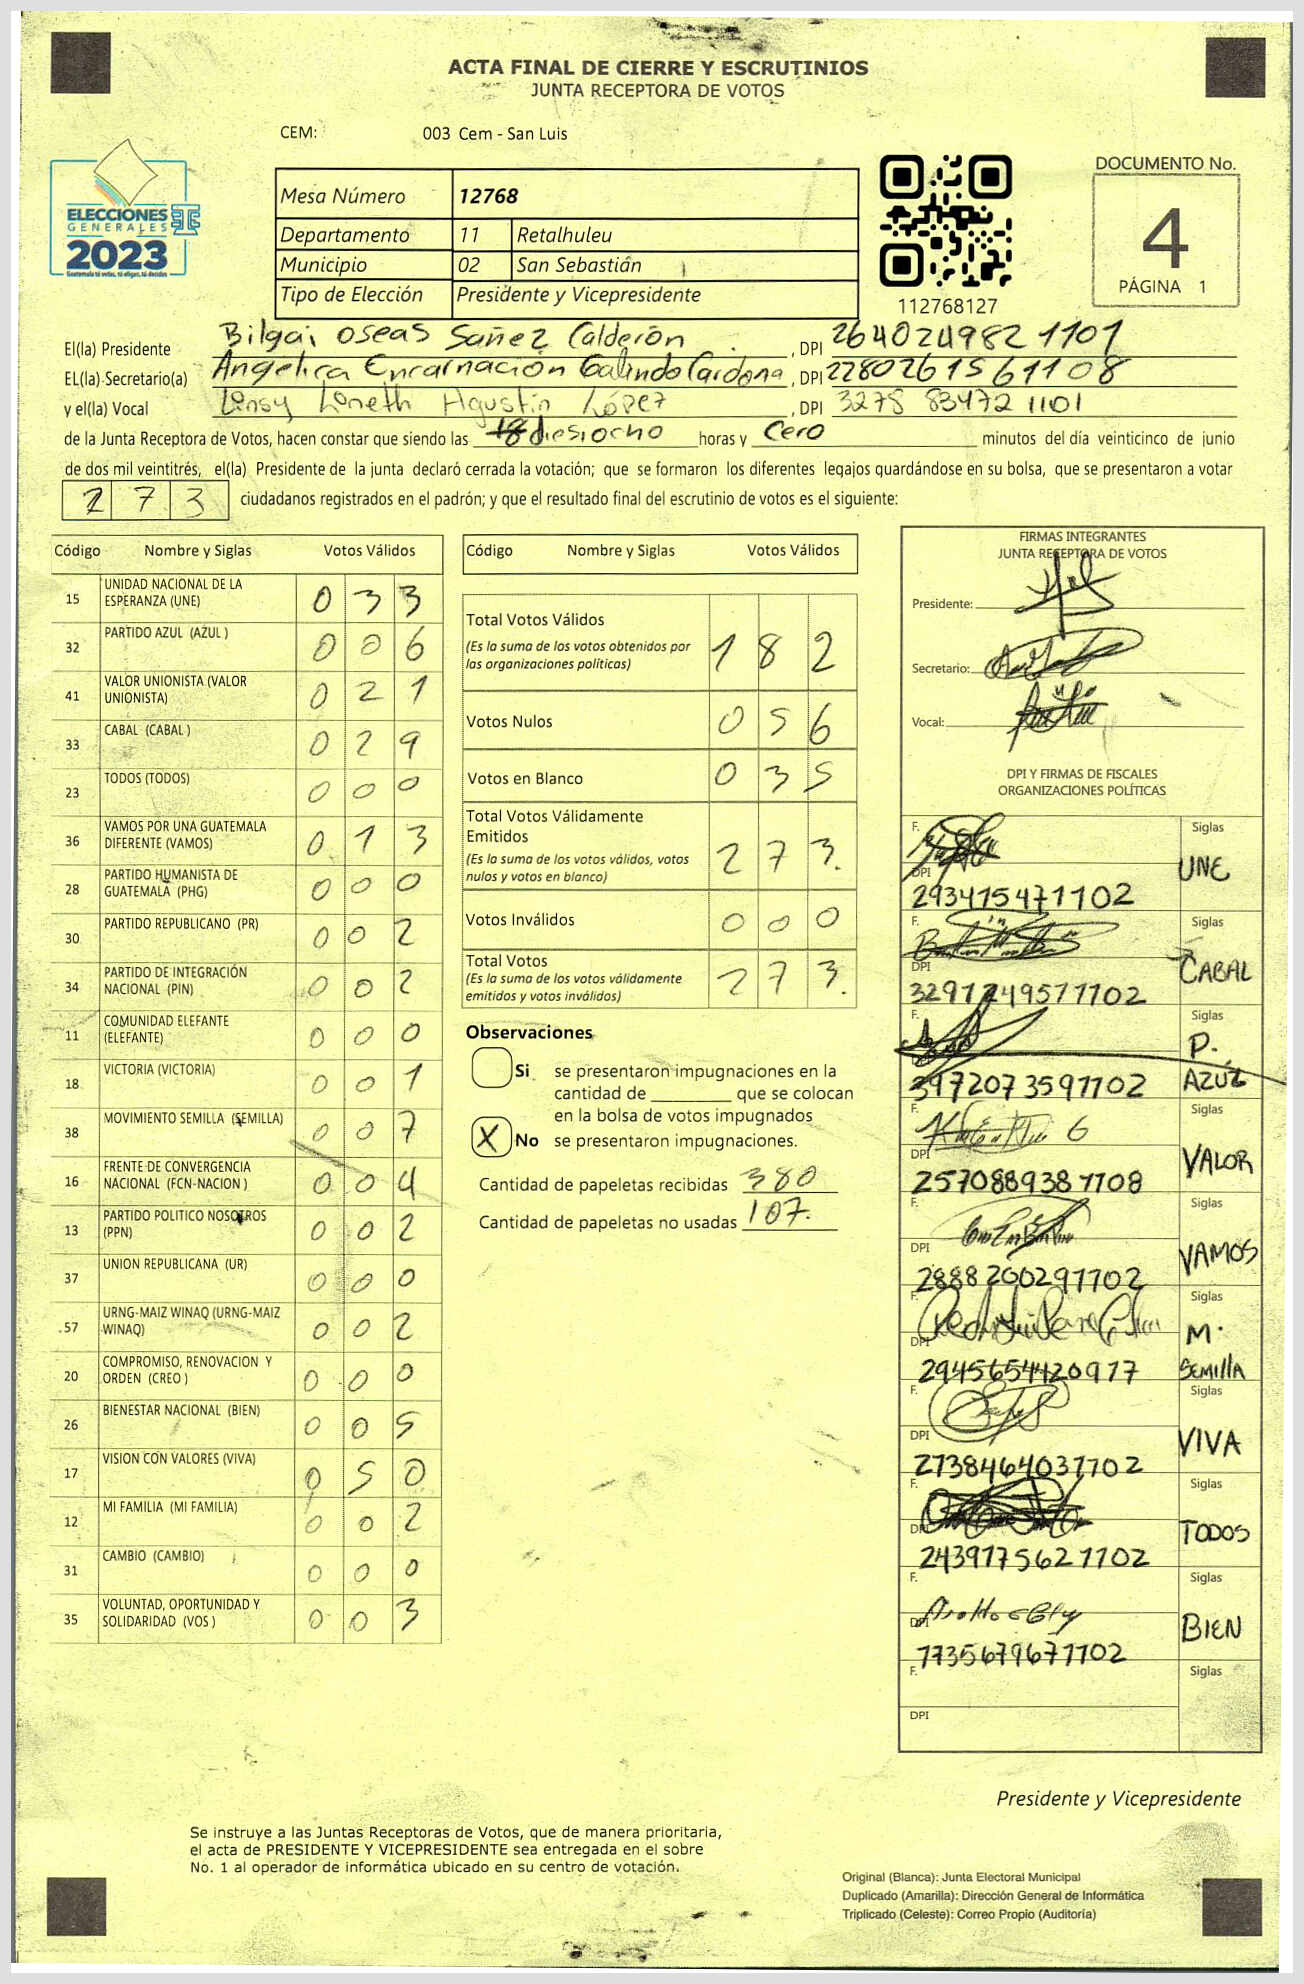 ACTA FINAL DE CIERRE Y ESCRUTINIOS
JUNTA RECEPTORA DE VOTOS
CEM: 003 Cem - San Luis
ELECCIONES
GENERALES
2023
Guatemala tú votas, tú eliges, tú decides
Mesa Número 12768
Departamento 11 Retalhuleu
Municipio 02 San Sebastián
Tipo de Elección Presidente y Vicepresidente
112768127
DOCUMENTO No.
4
PÁGINA 1
El(la) Presidente Bilgai oseas Sañez Calderón, DPI 264024982 1101
EL(la) Secretario(a) Angelica Encarnación Galindo Cardona, DPI 2280261561108
y el(la) Vocal Linsy Lineth Agustin López, DPI 3278 83472 1101
de la Junta Receptora de Votos, hacen constar que siendo las diesiocho horas y cero minutos del día veinticinco de junio
de dos mil veintitrés, el(la) Presidente de la junta declaró cerrada la votación; que se formaron los diferentes legajos guardándose en su bolsa, que se presentaron a votar
273 ciudadanos registrados en el padrón; y que el resultado final del escrutinio de votos es el siguiente:
Código Nombre y Siglas Votos Válidos
15 UNIDAD NACIONAL DE LA ESPERANZA (UNE) 0 3 3
32 PARTIDO AZUL (AZUL ) 0 0 6
41 VALOR UNIONISTA (VALOR UNIONISTA) 0 2 1
33 CABAL (CABAL ) 0 2 9
23 TODOS (TODOS) 0 0 0
36 VAMOS POR UNA GUATEMALA DIFERENTE (VAMOS) 0 1 3
28 PARTIDO HUMANISTA DE GUATEMALA (PHG) 0 0 0
30 PARTIDO REPUBLICANO (PR) 0 0 2
34 PARTIDO DE INTEGRACIÓN NACIONAL (PIN) 0 0 2
11 COMUNIDAD ELEFANTE (ELEFANTE) 0 0 0
18 VICTORIA (VICTORIA) 0 0 1
38 MOVIMIENTO SEMILLA (SEMILLA) 0 0 7
16 FRENTE DE CONVERGENCIA NACIONAL (FCN-NACION ) 0 0 4
13 PARTIDO POLITICO NOSOTROS (PPN) 0 0 2
37 UNION REPUBLICANA (UR) 0 0 0
57 URNG-MAIZ WINAQ (URNG-MAIZ WINAQ) 0 0 2
20 COMPROMISO, RENOVACION Y ORDEN (CREO ) 0 0 0
26 BIENESTAR NACIONAL (BIEN) 0 0 5
17 VISION CON VALORES (VIVA) 0 5 0
12 MI FAMILIA (MI FAMILIA) 0 0 2
31 CAMBIO (CAMBIO) 0 0 0
35 VOLUNTAD, OPORTUNIDAD Y SOLIDARIDAD (VOS ) 0 0 3
Código Nombre y Siglas Votos Válidos
Total Votos Válidos 1 8 2
(Es la suma de los votos obtenidos por
las organizaciones políticas)
Votos Nulos 0 5 6
Votos en Blanco 0 3 5
Total Votos Válidamente
Emitidos 2 7 3.
(Es la suma de los votos válidos, votos
nulos y votos en blanco)
Votos Inválidos 0 0 0
Total Votos 2 7 3.
(Es la suma de los votos válidamente
emitidos y votos inválidos)
Observaciones
Si se presentaron impugnaciones en la
cantidad de ________ que se colocan
en la bolsa de votos impugnados
X No se presentaron impugnaciones.
Cantidad de papeletas recibidas 380
Cantidad de papeletas no usadas 107.
FIRMAS INTEGRANTES
JUNTA RECEPTORA DE VOTOS
Presidente:
Secretario:
Vocal:
DPI Y FIRMAS DE FISCALES
ORGANIZACIONES POLÍTICAS
F. Siglas
UNE
DPI
293415471102
F. Siglas
CABAL
DPI
3291249571102
F. Siglas
P. AZUL
3972073591102
F. Siglas
VALOR
DPI
2570889381108
F. Siglas
VAMOS
DPI
2888200291102
F. Siglas
M. SEMILLA
DPI
2945654420917
F. Siglas
VIVA
DPI
2738464031102
F. Siglas
TODOS
DPI
2439175621102
F. Siglas
BIEN
DPI
1735679671102
F. Siglas
DPI
Presidente y Vicepresidente
Se instruye a las Juntas Receptoras de Votos, que de manera prioritaria,
el acta de PRESIDENTE Y VICEPRESIDENTE sea entregada en el sobre
No. 1 al operador de informática ubicado en su centro de votación.
Original (Blanca): Junta Electoral Municipal
Duplicado (Amarilla): Dirección General de Informática
Triplicado (Celeste): Correo Propio (Auditoría)